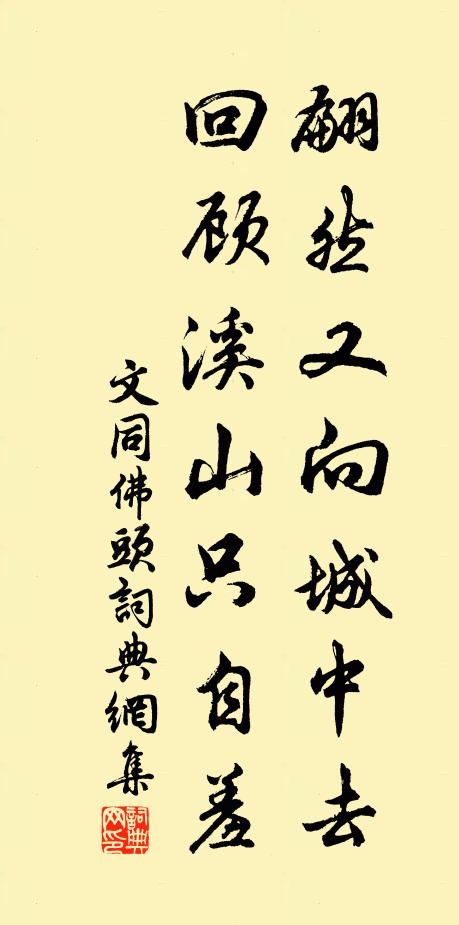 翩然又向城中去
回顾溪山只自羞
文同佛頭詞典網集
詞典網印